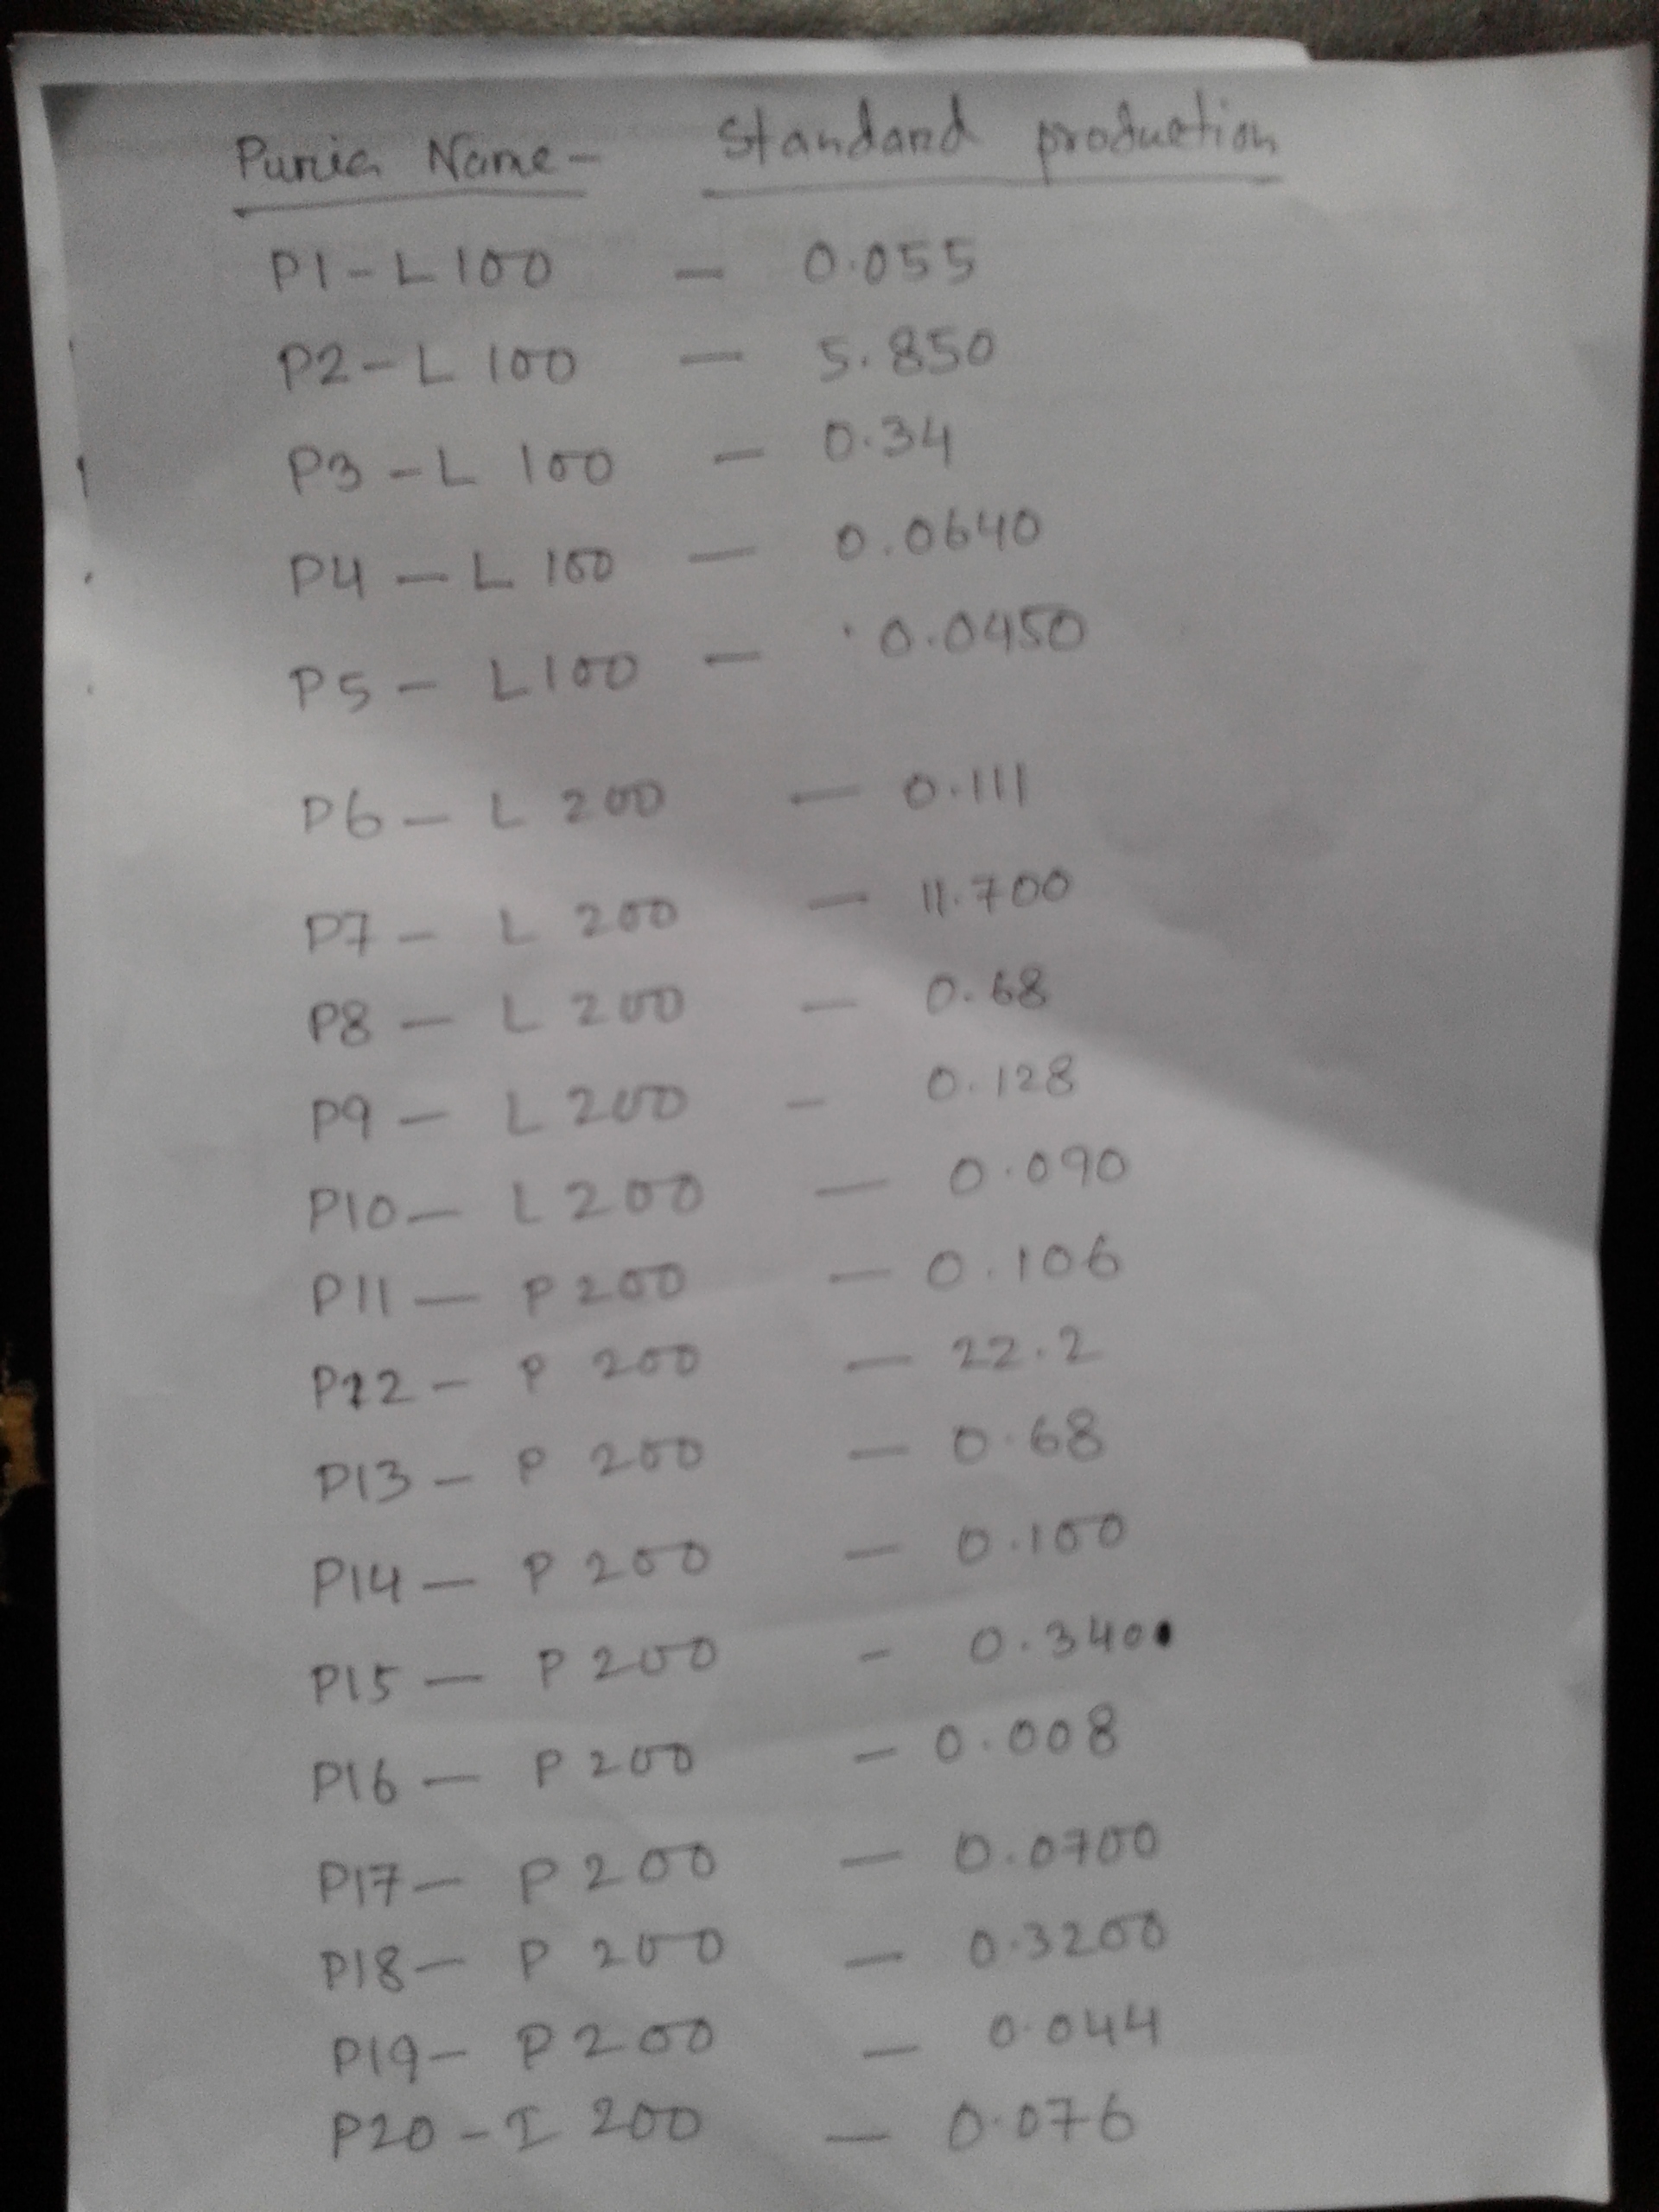 Puria Name - Standard production
P1 - L 100 - 0.055
P2 - L 100 - 5.850
P3 - L 100 - 0.34
P4 - L 100 - 0.0640
P5 - L 100 - 0.0450
P6 - L 200 - 0.111
P7 - L 200 - 11.700
P8 - L 200 - 0.68
P9 - L 200 - 0.128
P10 - L 200 - 0.090
P11 - P 200 - 0.106
P12 - P 200 - 22.2
P13 - P 200 - 0.68
P14 - P 200 - 0.100
P15 - P 200 - 0.340
P16 - P 200 - 0.008
P17 - P 200 - 0.0700
P18 - P 200 - 0.3200
P19 - P 200 - 0.044
P20 - I 200 - 0.076